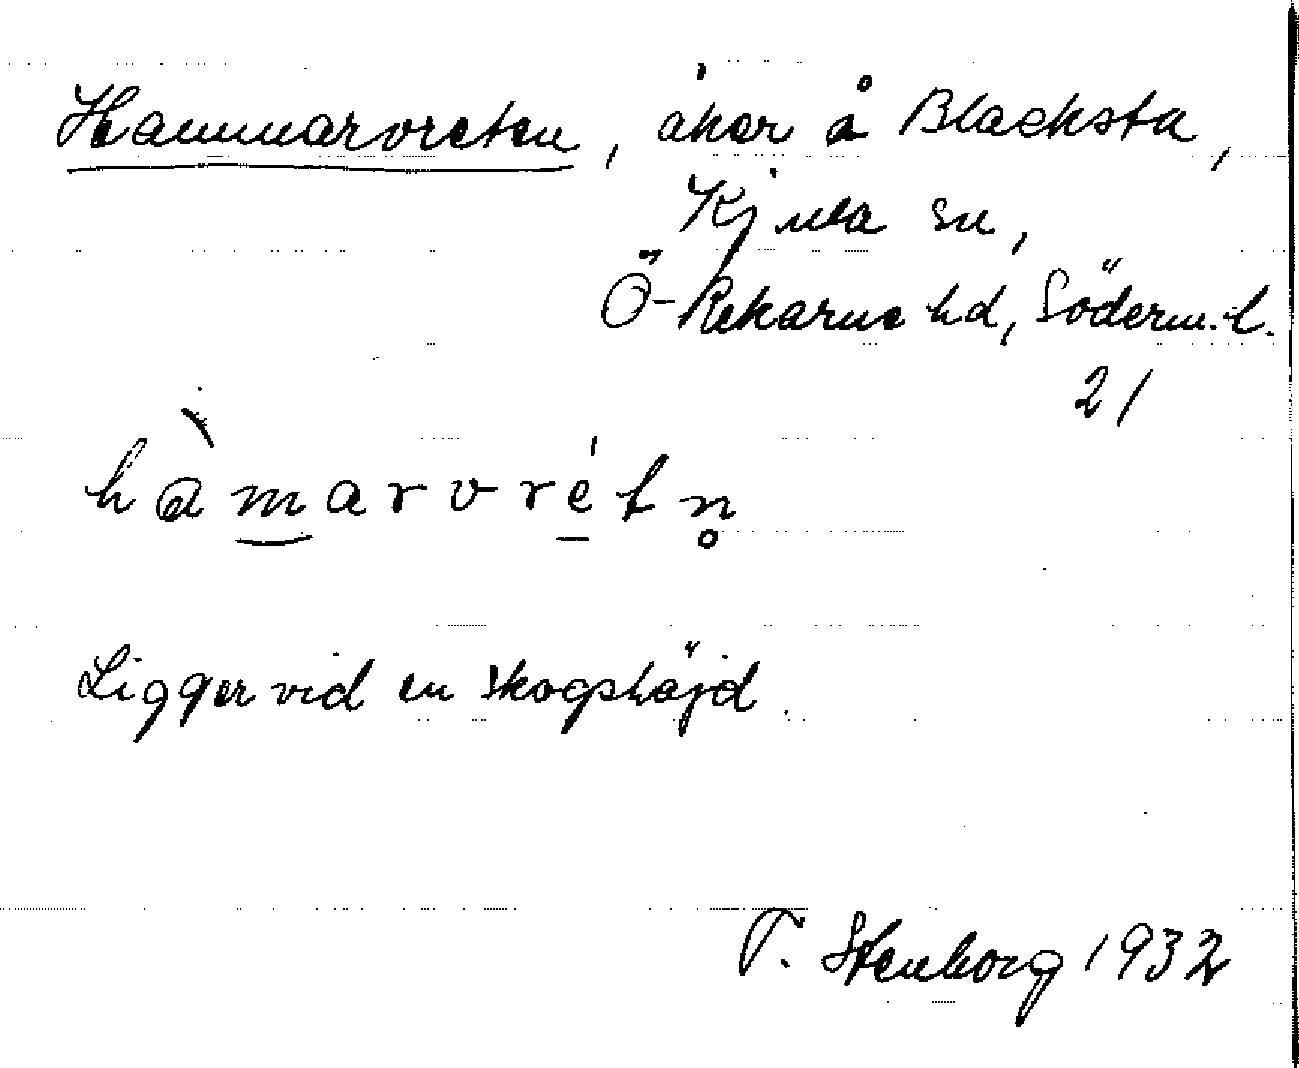 Hammarvreten, åker å Blacksta,
Kjula sn,
Ö-Rekarne hd, Söderm. l.
21
hàmarvrétn̥
Ligger vid en skogshöjd.
T. Stenborg 1932